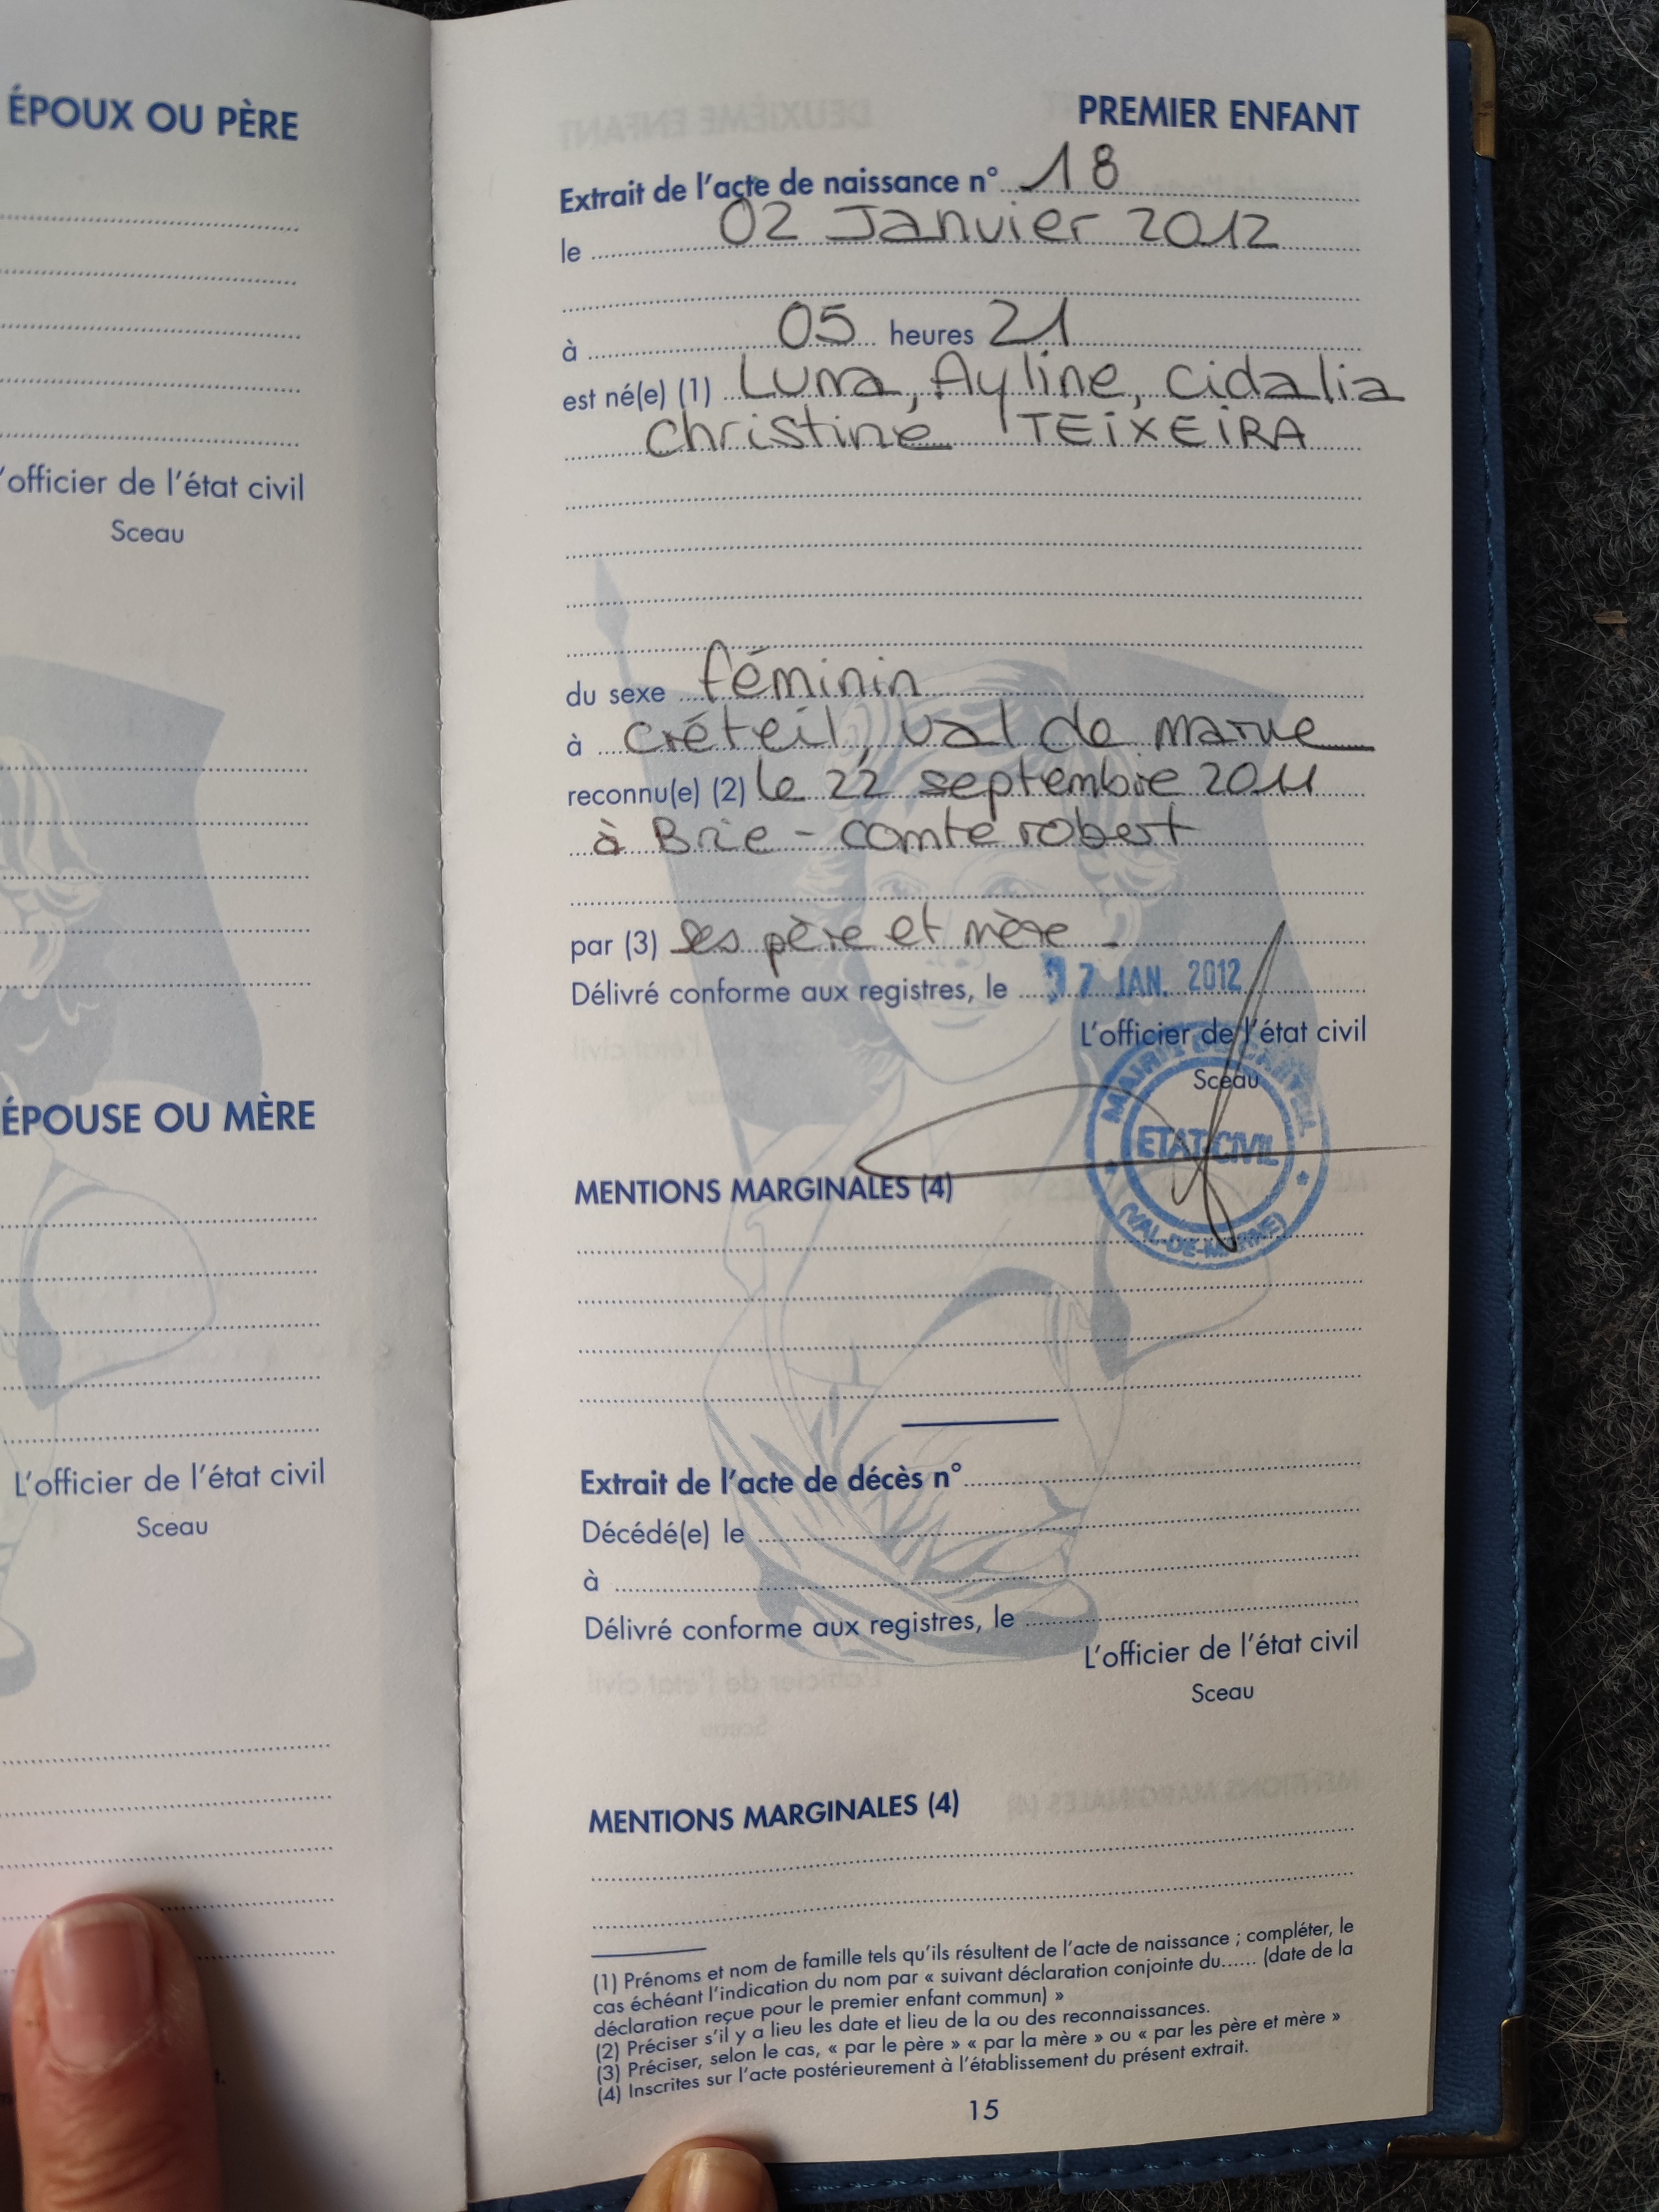 ÉPOUX OU PÈRE
'officier de l'état civil
Sceau
ÉPOUSE OU MÈRE
L'officier de l'état civil
Sceau
PREMIER ENFANT
Extrait de l'acte de naissance n° 18
le 02 Janvier 2012
à 05 heures 21
est né(e) (1) Luna, Ayline, Cidalia
Christine TEIXEIRA
du sexe féminin
à Créteil, val de marne
reconnu(e) (2) le 22 septembre 2011
à Brie-comte robert
par (3) ses père et mère -
Délivré conforme aux registres, le 7 JAN. 2012
L'officier de l'état civil
Sceau
MAIRIE DE CRÉTEIL
ETAT-CIVIL
(VAL-DE-MARNE)
MENTIONS MARGINALES (4)
Extrait de l'acte de décès n°
Décédé(e) le
à
Délivré conforme aux registres, le
L'officier de l'état civil
Sceau
MENTIONS MARGINALES (4)
(1) Prénoms et nom de famille tels qu'ils résultent de l'acte de naissance ; compléter, le
cas échéant l'indication du nom par « suivant déclaration conjointe du...... (date de la
déclaration reçue pour le premier enfant commun) »
(2) Préciser s'il y a lieu les date et lieu de la ou des reconnaissances.
(3) Préciser, selon le cas, « par le père » « par la mère » ou « par les père et mère »
(4) Inscrites sur l'acte postérieurement à l'établissement du présent extrait.
15